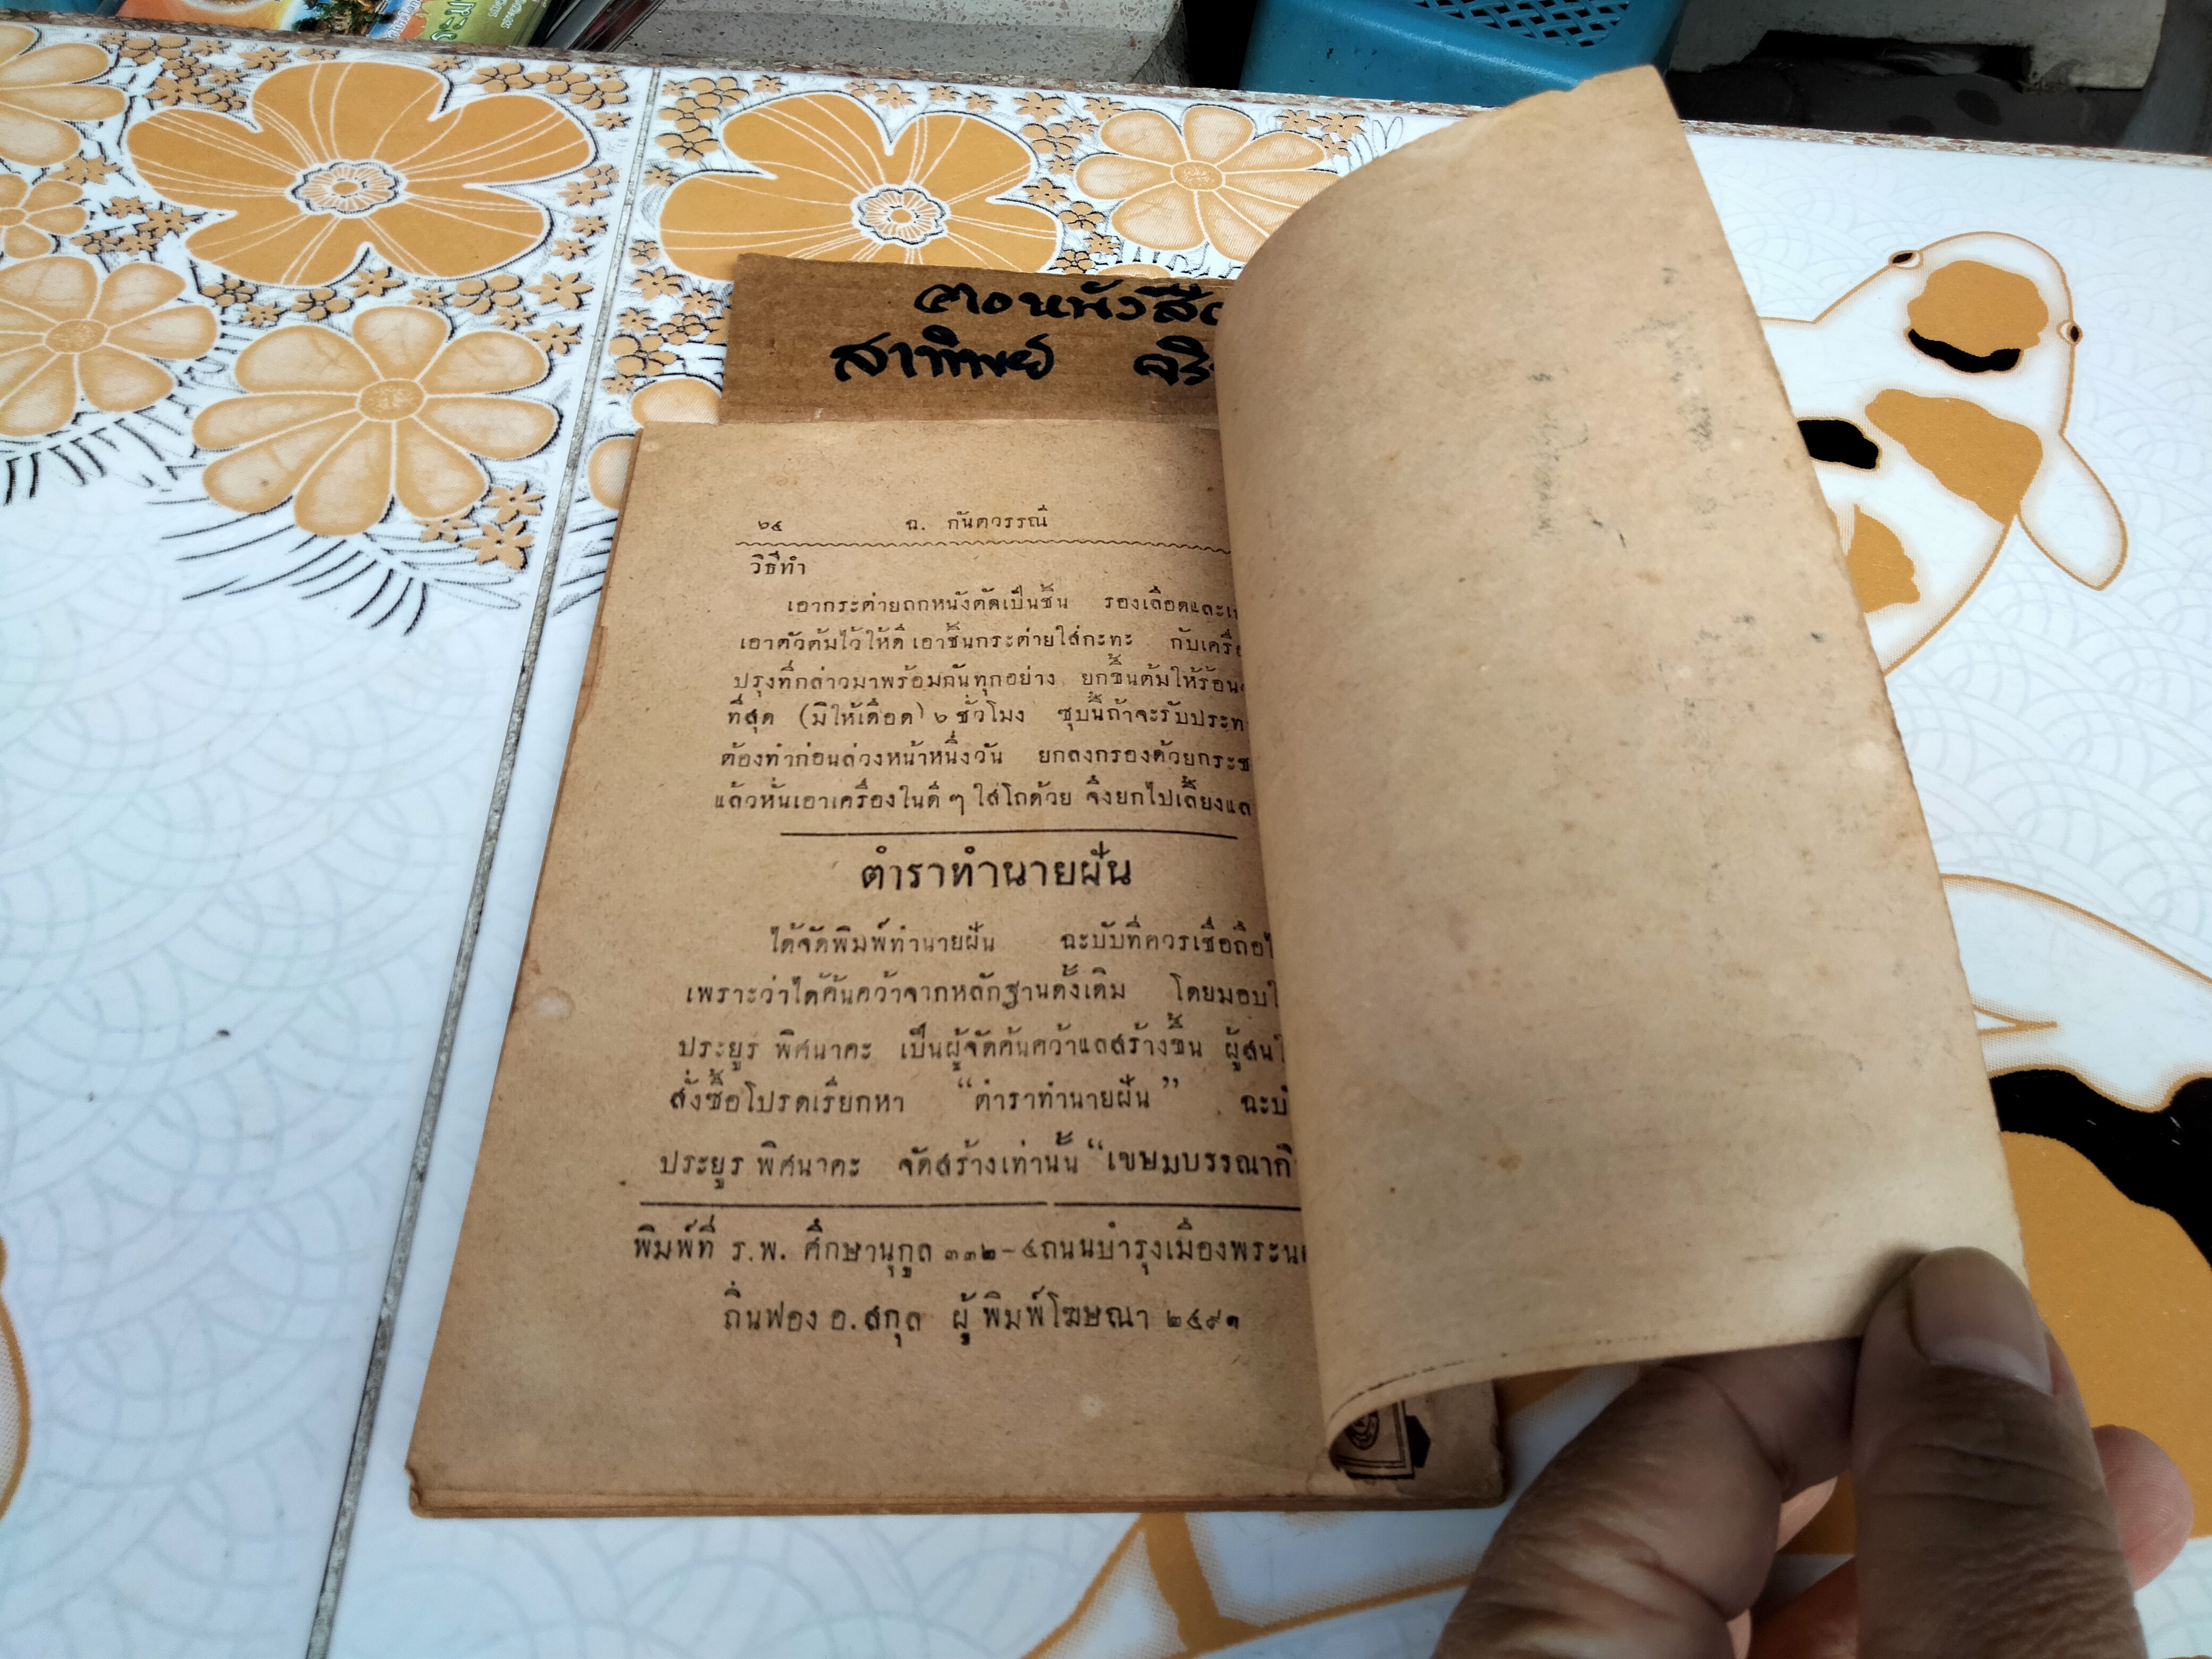 ฅอหนังสือ
สาทิพย์
๒๔ ฉ. กันตวรรณ์
วิธีทำ
เอากระต่ายถกหนังตัดเป็นชิ้น รองเลือดและ
เอาตัวต้มไว้ให้ดี เอาชิ้นกระต่ายใส่กะทะ กับเครื่อ
ปรุงที่กล่าวมาพร้อมกันทุกอย่าง ยกขึ้นต้มให้ร้อน
ที่สุด (มิให้เดือด) ๖ ชั่วโมง ซุบนี้ถ้าจะรับประท
ต้องทำก่อนล่วงหน้าหนึ่งวัน ยกลงกรองด้วยกระช
แล้วหั่นเอาเครื่องในดี ๆ ใส่โถด้วย จึงยกไปเลี้ยงแล
ตำราทำนายฝัน
ได้จัดพิมพ์ทำนายฝัน ฉะบับที่ควรเชื่อถือไ
เพราะว่าได้ค้นคว้าจากหลักฐานดั้งเดิม โดยมอบใ
ประยูร พิศนาคะ เป็นผู้จัดค้นคว้าแลสร้างขึ้น ผู้สนใ
สั่งซื้อโปรดเรียกหา “ตำราทำนายฝัน” ฉะบั
ประยูร พิศนาคะ จัดสร้างเท่านั้น “เขษมบรรณากิ
พิมพ์ที่ ร.พ. ศึกษานุกูล ๓๓๒-๔ ถนนบำรุงเมืองพระน
ถิ่นฟอง อ.สกุล ผู้พิมพ์โฆษณา ๒๔๙๑